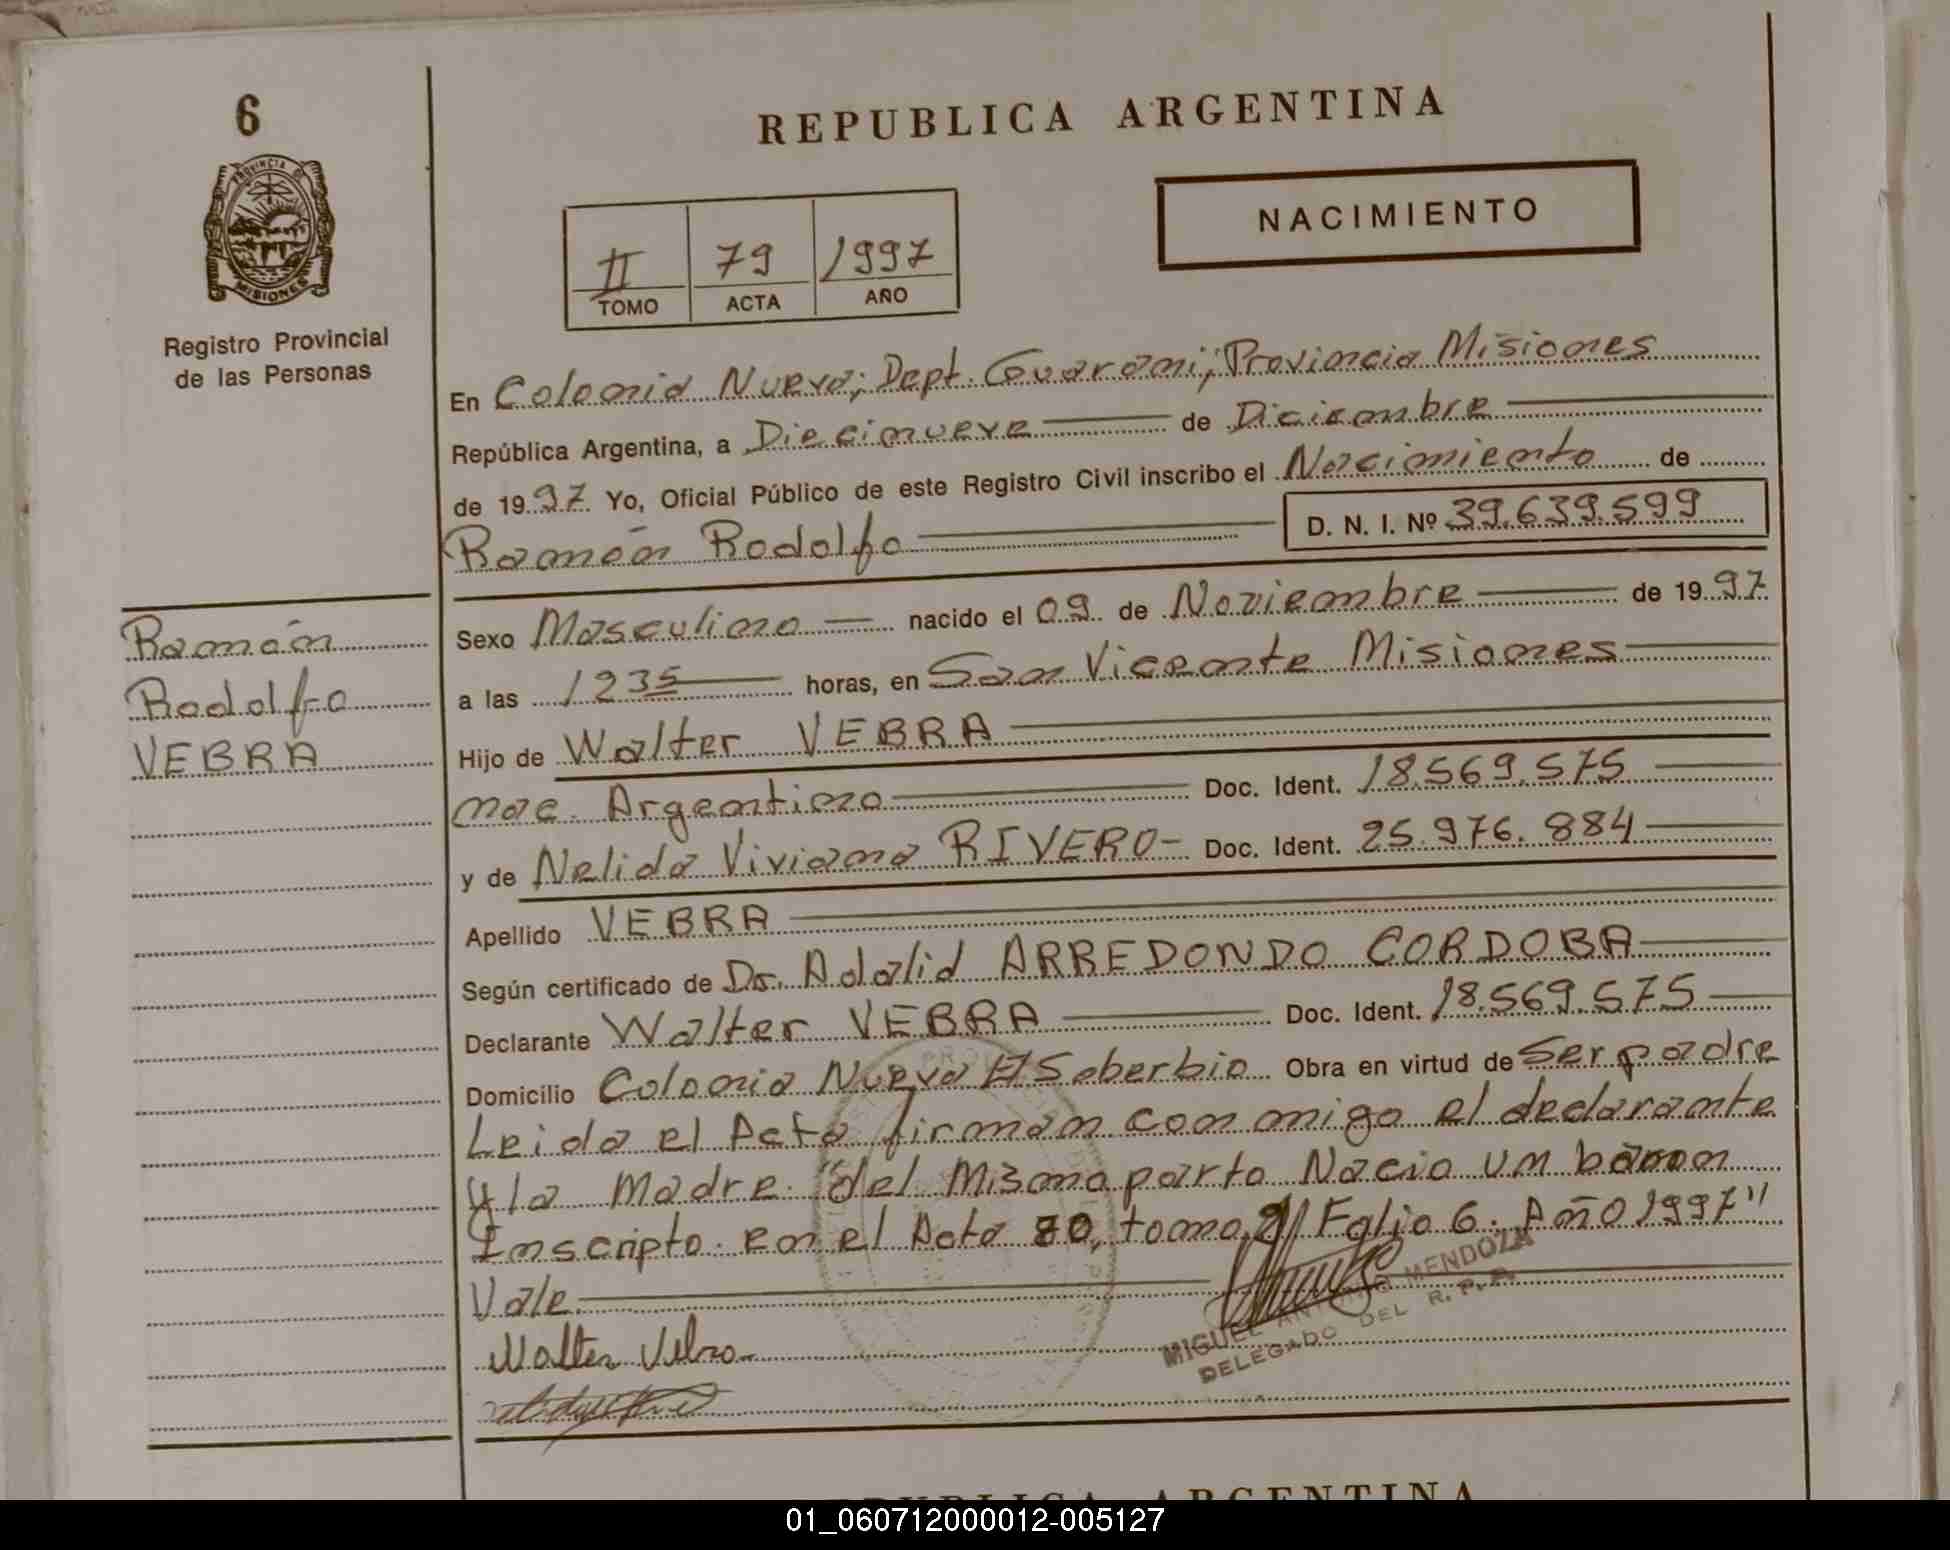 6
REPUBLICA ARGENTINA
PROVINCIA DE
MISIONES
Registro Provincial
de las Personas
II 79 1997
TOMO ACTA AÑO
NACIMIENTO
En Colonia Nueva; Dept. Guarani; Provincia Misiones
República Argentina, a Diecinueve de Diciembre
de 1997 Yo, Oficial Público de este Registro Civil inscribo el Nacimiento de
Ramón Rodolfo D. N. I. Nº 39.639.599
Ramón
Rodolfo
VEBRA
Sexo Masculino nacido el 09 de Noviembre de 1997
a las 1235 horas, en San Vicente Misiones
Hijo de Walter VEBRA
nac. Argentino Doc. Ident. 18.569.575
y de Nelida Viviana RIVERO- Doc. Ident. 25.976.884
Apellido VEBRA
Según certificado de Dr. Adalid ARREDONDO CORDOBA
Declarante Walter VEBRA Doc. Ident. 18.569.575
Domicilio Colonia Nueva El Soberbio Obra en virtud de Ser padre
Leida el Acta firman conmigo el declarante
y la Madre. "del Mismo parto Nacio un baron
Inscripto en el Acta 80, tomo 2 Folio 6. Año 1997"
Vale
Walter Vebra
MIGUEL ANTONIO MENDOZA
DELEGADO DEL R. P. P.
REPUBLICA ARGENTINA
01_060712000012-005127